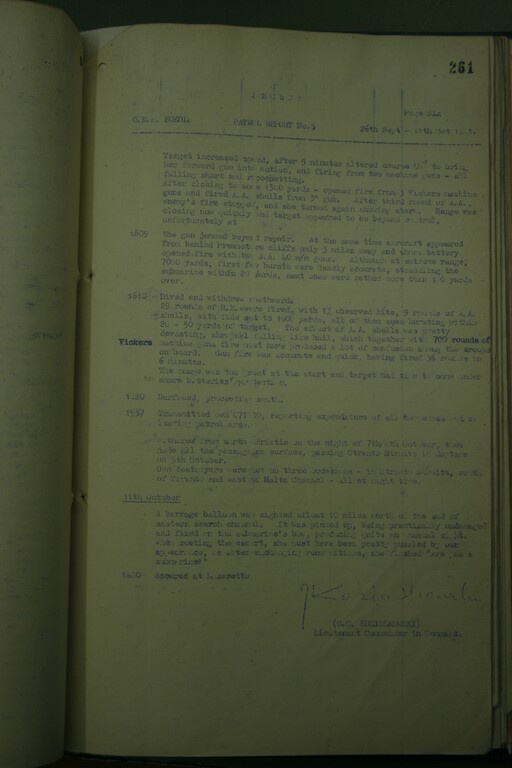 261
Page Six
PATROL REPORT No.5
26th Sept - 11th Oct
Target increased speed, after 5 minutes altered course to bring
her forward gun into action, and firing from two machine guns - all
falling short and ricochetting.
After closing to some 1500 yards - opened fire from 3 Vickers machine
guns and fired A.A. shells from 3" gun. After third round of A.A.,
enemy's fire stopped, and she turned again showing stern. Range was
closing now quickly and target appeared to be beyond control,
unfortunately at
1609 the gun jammed beyond repair. At the same time aircraft appeared
from behind cliffs only 3 miles away and shore battery
opened fire with two A.A. 40 m/m guns. Although at extreme range,
7000 yards, first few bursts were deadly accurate, straddling the
submarine within 20 yards, next ones were rather more than 100 yards
over.
1610 Dived and withdrew northward.
29 rounds of H.E. were fired, with 15 observed hits, 9 rounds of A.A.
shells, with fuze set to 1000 yards, all of them seen bursting within
20 - 50 yards of target. The effect of A.A. shells was pretty
devasting, shrapnel falling like hail, which together with 700 rounds of
Vickers machine guns fire must have produced a lot of confusion among the troops
on board. Gun fire was accurate and quick, having fired 38 rounds in
6 minutes.
The range was too great at the start and target had time to come under
shore batteries' protection.
1820 Surfaced, proceeding south.
1937 Transmitted reporting expenditure of all torpedoes and
leaving patrol area.
from North Adriatic on the night of 7th/8th October, then
made all the passage on surface, passing Otranto Straits in daytime
on 9th October.
Own destroyers were met on three occasions - in Otranto Straits, south
of Taranto and east of Malta Channel - all at night time.
11th October
A barrage balloon was sighted afloat 10 miles north of the end of
eastern search channel. It was picked up, being practically undamaged
and fixed on the submarine's bow, producing quite an unusual sight.
When meeting the escort, she must have been pretty puzzled by our
appearance, as after exchanging recognition, she flashed "Are you a
submarine?"
Secured at Lazaretto
Lieutenant Commander in Command.